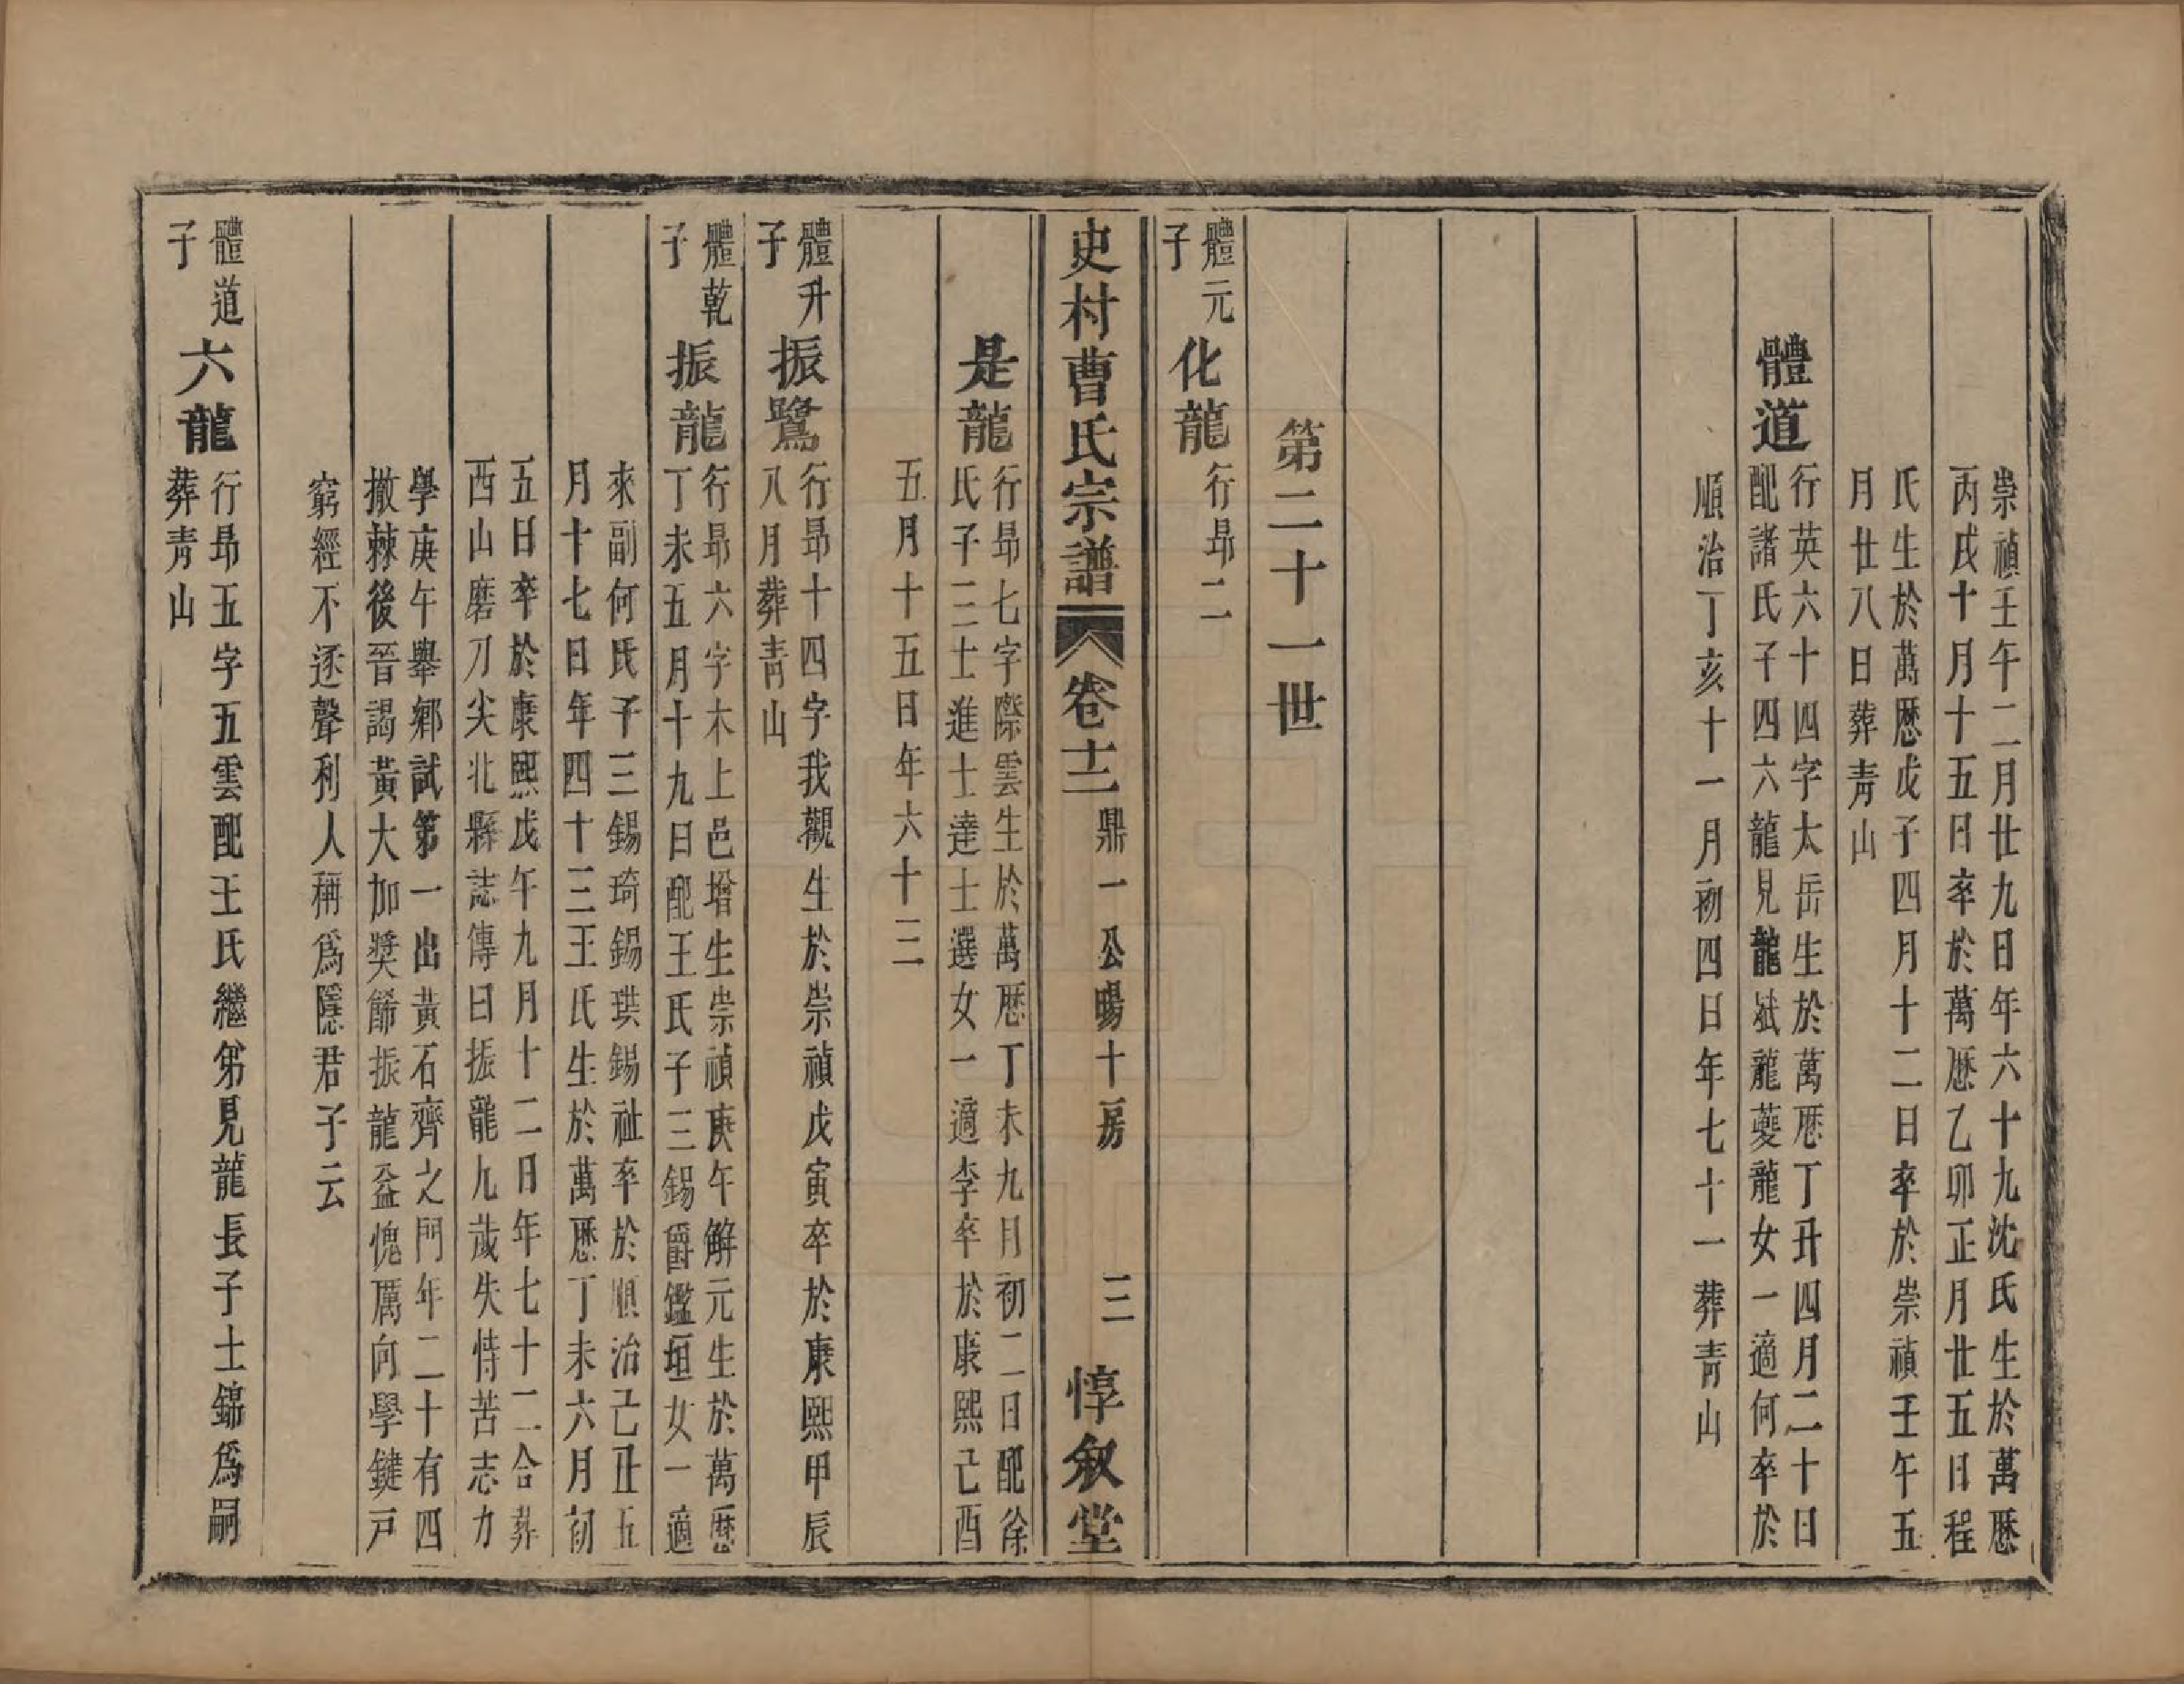 崇禎壬午二月廿九日年六十九沈氏生於萬歷
丙戌十月十五日卒於萬歷乙卯正月廿五日程
氏生於萬歷戊子四月十二日卒於崇禎壬午五
月廿八日葬靑山
體道
行英六十四字太岳生於萬歷丁丑四月二十日
配諸氏子四六龍見龍斌龍夔龍女一適何卒於
順治丁亥十一月初四日年七十一葬靑山
第二十一世
體元
子
化龍
行昻二
史村曹氏宗譜
卷十二
鼎一公暘十房
三
惇叙堂
是龍
行昻七字際雲生於萬歷丁未九月初二日配徐
氏子三士進士達士選女一適李卒於康熙己酉
五月十五日年六十三
體升
子
振鷺
行昻十四字我觀生於崇禎戊寅卒於康熙甲辰
八月葬靑山
體乾
子
振龍
行昻六字木上邑增生崇禎庚午解元生於萬歷
丁未五月十九日配王氏子三錫爵鑑垣女一適
來副何氏子三錫琦錫珙錫祉卒於順治己丑五
月十七日年四十三王氏生於萬歷丁未六月初
五日卒於康熙戊午九月十二日年七十二合葬
西山磨刀尖北縣誌傳曰振龍九歲失恃苦志力
學庚午舉鄉試第一出黃石齊之門年二十有四
撤棘後晉謁黃大加奬飾振龍益愧厲向學鍵戸
窮經不逐聲利人稱爲隱君子云
體道
子
六龍
行昻五字五雲配王氏繼弟見龍長子士錦爲嗣
葬靑山